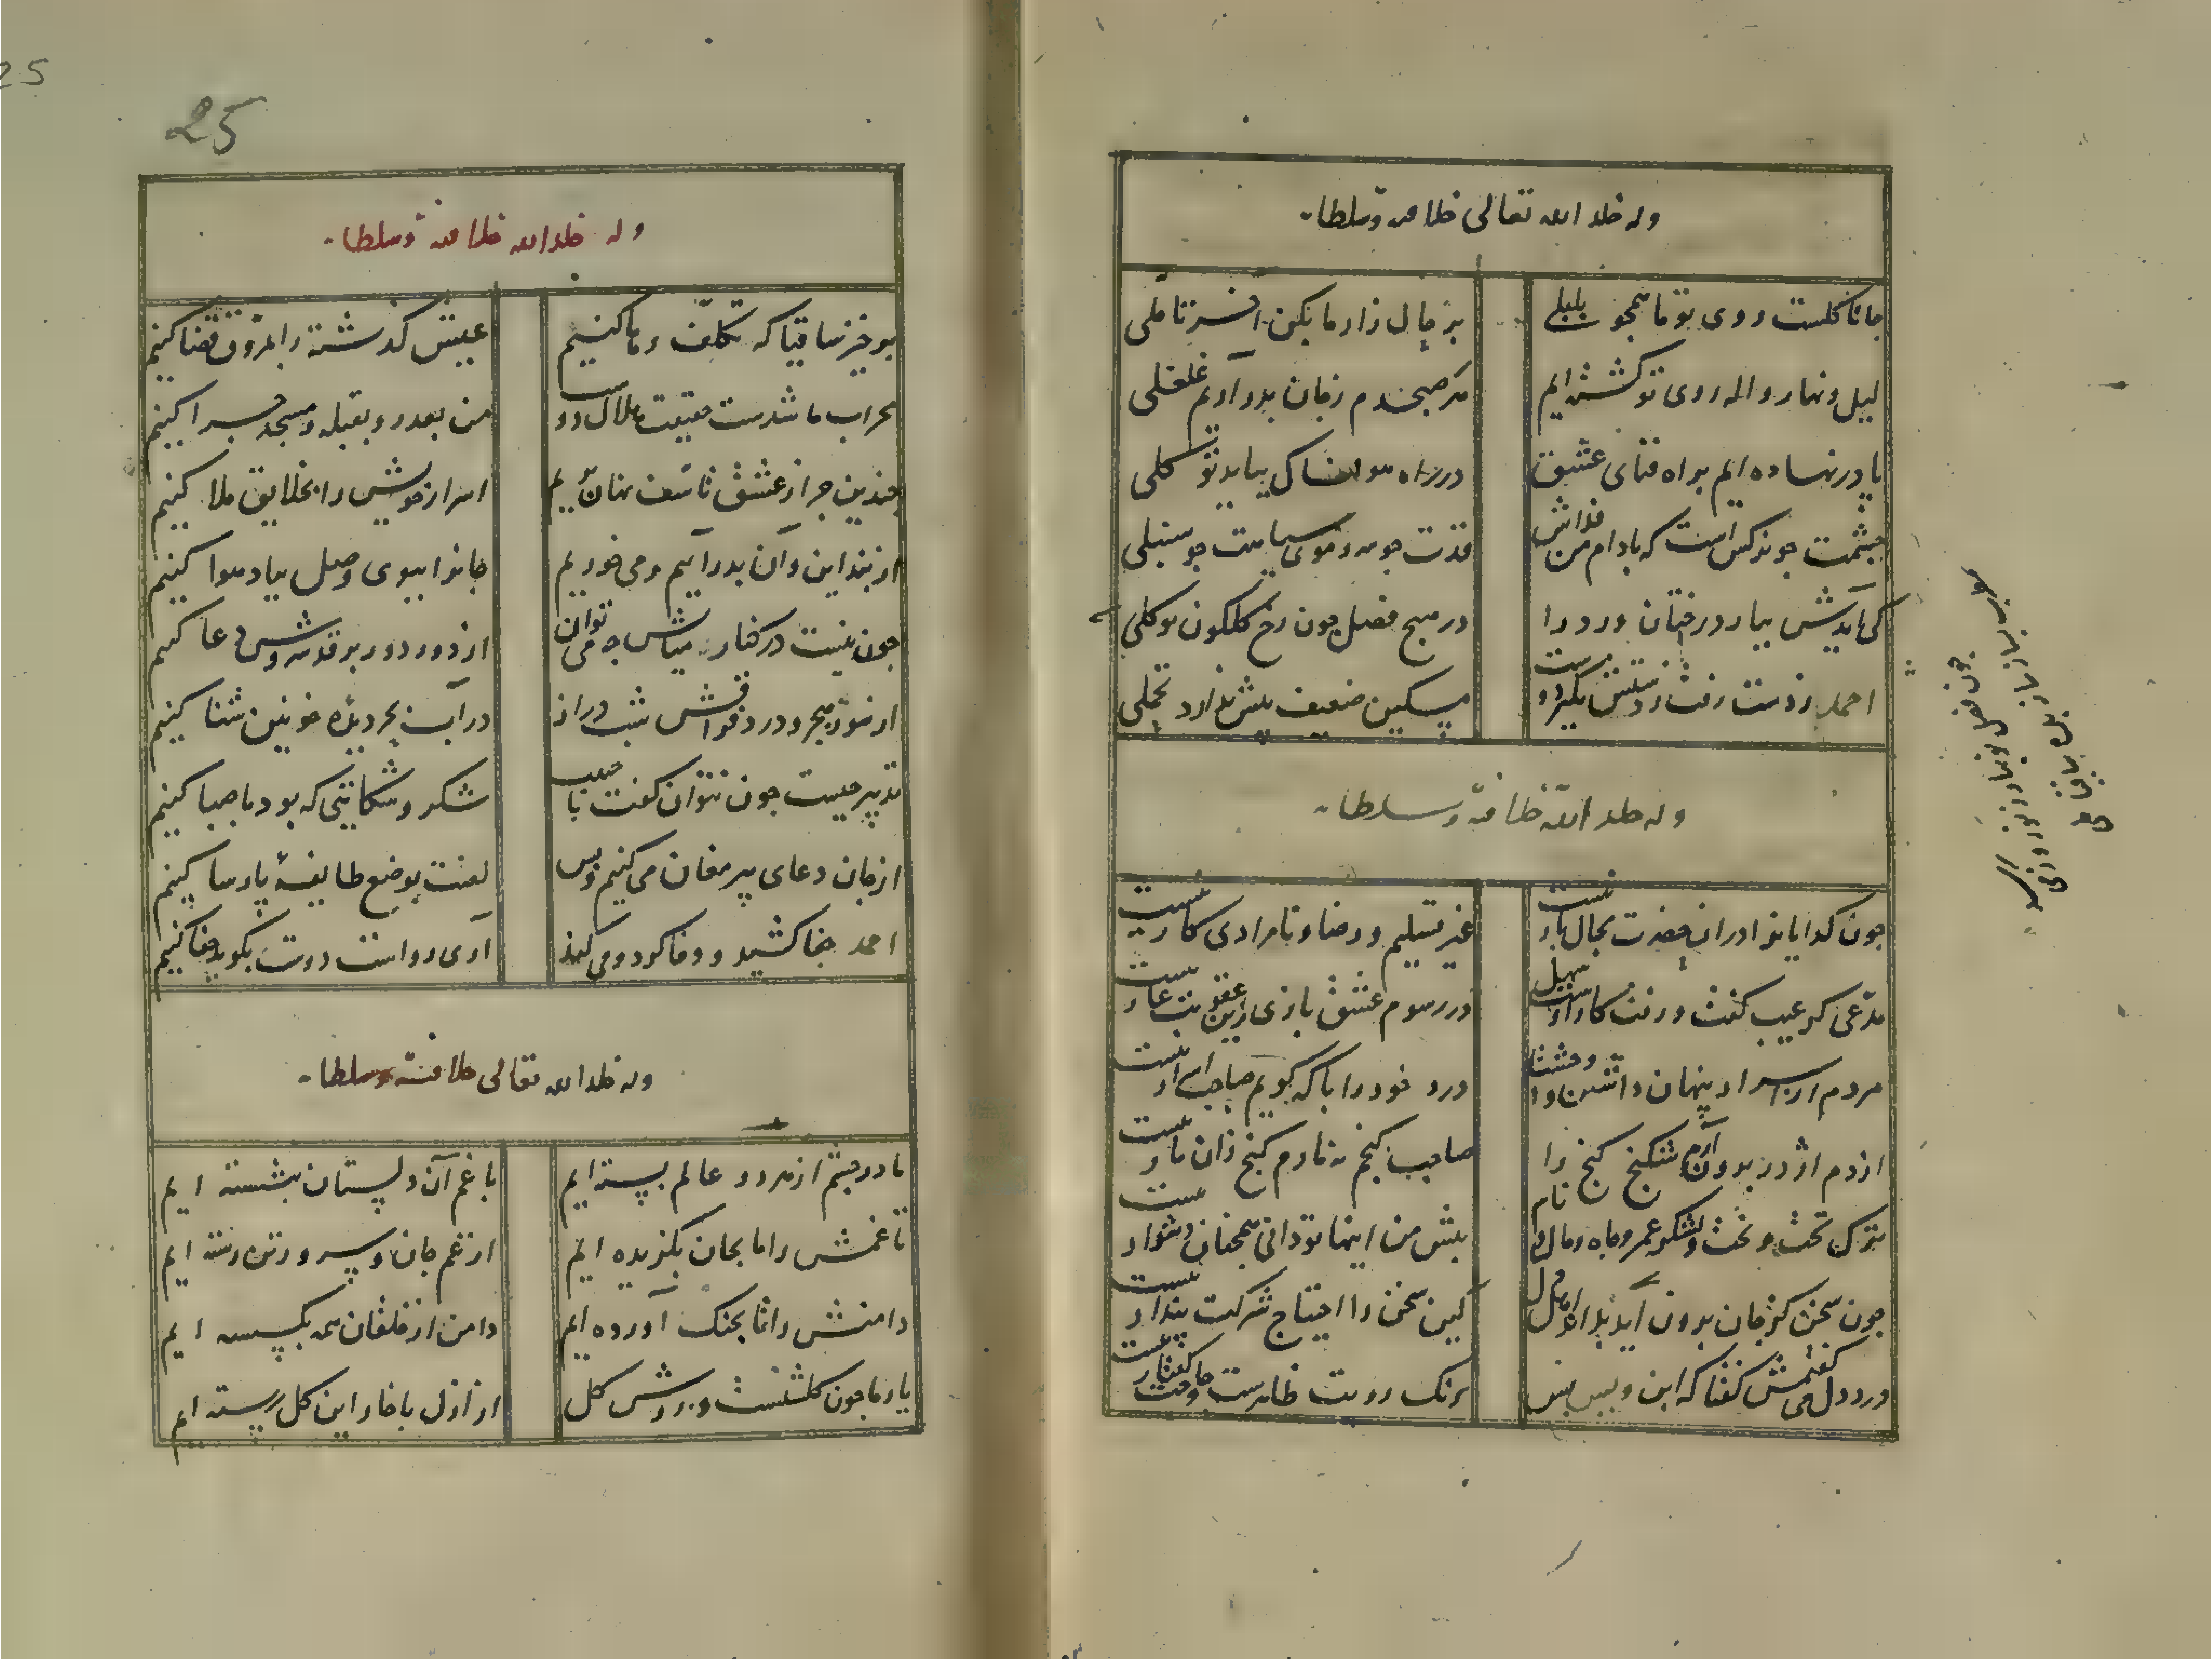 وله خلد الله تعالی خلافته وسلطانه
جانا کلست روی تو ما همجو بلبلی
بر حال زار ما بکن آخر تاملی
لیل و نهار واله روی تو کشته ایم
هر صبحدم زفان بدر آریم غلغلی
پا در نهاده ایم براه فنای عشق
در راه هولناک بباید توکلی
چشمت جو نرکس است که بادام من فداش
قدت جو سرو موی سیاهت جو سنبلی
کی آیدش بیار درختان ورد را
در هیج فصل چون رخ کلکون تو کلی
احمد ز دست رفت ز دستش بکیر دوست
مسکین ضعیف بیش ندارد تحملی
وله خلد الله خلافته وسلطانه
چون کدایانرا در ان حضرت مجال بار نیست
غیر تسلیم و رضا و نامرادی کار نیست
مدعی کر عیب کفت و رفت کارش سهل
در رسوم عشق بازی زین عقوبت عار نیست
مردم از اسرار پنهان داشتن وا وحشتا
درد خود را با که کویم صاحب اسرار نیست
از دم اژدر برون آرم شکنج کنج را
صاحب کنجم نه مارم کنج زان مار نیست
ترک تخت و بخت و لشکر عمر و جاه و مال و نام
پیش من اینها تو دانی همجنان دشوار نیست
چون سخن کز جان برون آید بداند اهل دل
کین سخن را احتیاج شرکت پندار نیست
درد دل می کفتمش کفتا که این و بس
رنک رویت ظاهرست حاجت کفتار نیست
25
وله خلد الله خلافته وسلطانه
برخیز ساقیا که تکلف رها کنیم
عیش کذشته را بمروق قضا کنیم
محراب ما شدست حقیقت هلال دوست
من بعد رو بقبله و مسجد چرا کنیم
چندین چرا ز عشق تاسف نهان بریم
اسرار خویش را بخلایق ملا کنیم
از بند این و آن بدر آییم و می خوریم
جانرا ببوی وصل بباد هوا کنیم
چون نیست در کنار میانش چه می توان
از دور دور بر قد سروش دعا کنیم
از سوز هجر و درد فراقش شب دراز
در آب بحر دیده خونین شنا کنیم
تدبیر چیست چون نتوان کفت با حبیب
شکر و شکایتی که بود با صبا کنیم
از جان دعای پیر مغان می کنیم و بس
لعنت بوضع طایفهٔ پارسا کنیم
احمد جفا کشید و وفا کرد و می کند
آری رواست دوست بکوید جفا کنیم
وله خلد الله تعالی خلافته وسلطانه
ما دو چشم از هر دو عالم بسته ایم
با غم آن دلستان بنشسته ایم
تا غمش را ما بجان بکزیده ایم
از غم جان و سر و زتن رسته ایم
دامنش را تا بجنک آورده ایم
دامن از خلقان همه بکسسته ایم
یار ما چون کلشنست و روش کل
از ازل با خار این کل رسته ایم